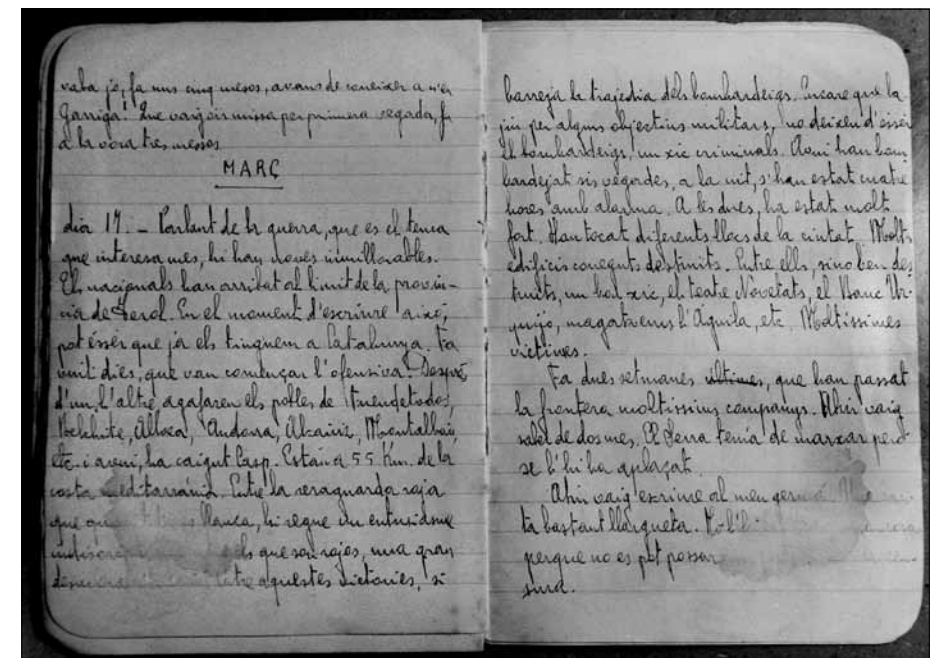 vaba jo, fa uns cinq mesos, avans de coneixer a n'en
Garriga! Que vaig oir missa per primera vegada, fa
a la vora tres mesos.
MARÇ
dia 17. — Parlant de la guerra, que es el tema
que interesa mes, hi han noves inmillorables.
Els nacionals han arribat al limit de la provin-
cia de Terol. En el moment d'escriure aixó,
pot ésser que ja els tinguem a Catalunya. Fa
vuit dies, que van començar l'ofensiva. Després,
d'un, l'altre agafaren els pobles de Fuendetodos,
Belchite, Alloza, Andorra, Alcañiz, Montalban,
etc. i avui, ha caigut Casp. Estan a 55 Km. de la
costa mediterránia. Entre la reraguarda roja
que blanca, hi regne un entusiasme
els que son rojos, una gran
entre aquestes victories, si
barreja la trajedia dels bombardeigs. Encare que la
fin per alguns objectius militars, no deixen d'esser
els bombardeigs, un xic criminals. Avui han bom
bardejat sis vegades, a la nit, s'han estat cuatre
hores amb alarma. A les dues, ha estat molt
fort. Han tocat diferents llocs de la ciutat. Molts
edificis coneguts destruits. Entre ells, sino ben des
truits, un bon xic, el teatre Novetats, el Banc Ur-
quijo, magatzems l'Aguila, etc. Moltissimes
victimes.
Fa dues setmanes ultimes, que han passat
la frontera moltissims companys. Ahir vaig
saber de dos mes. El Serra tenia de marxar peró
se l'hi ha aplaçat.
Ahir vaig escriure al meu germá.
ta bastant llargueta.
perque no es pot posar
sura.